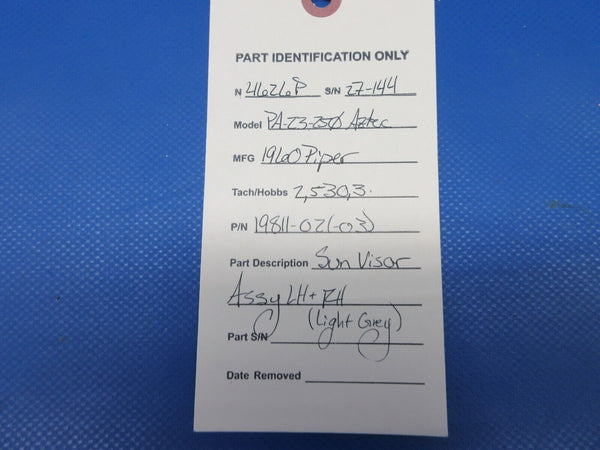 PART IDENTIFICATION ONLY
N 4626P S/N 27-144
Model PA-23-250 Aztec
MFG 1960 Piper
Tach/Hobbs 2,530.3
P/N 19811-02(-03)
Part Description Sun Visor
Assy LH + RH
(Light Grey)
Part S/N
Date Removed